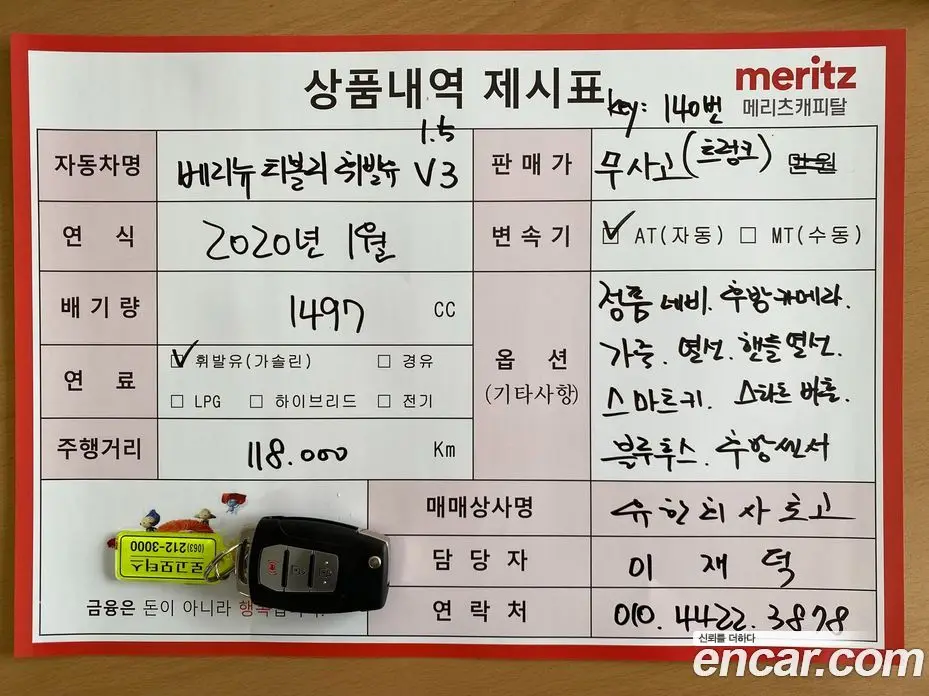 상품내역 제시표
meritz
메리츠캐피탈
key: 140번
자동차명
베리뉴 티볼리 휘발유 1.5 V3
판매가
무사고(트렁크) 만원
연 식
2020년 1월
변속기
AT(자동) MT(수동)
배기량
1497 CC
옵 션
(기타사항)
정품 네비. 후방카메라.
가죽. 열선. 핸들열선.
스마트키. 스타트 버튼.
블루투스. 후방센서
연 료
휘발유(가솔린) 경유
LPG 하이브리드 전기
주행거리
118.000 Km
매매상사명
유한회사 로고
담 당 자
이 재 덕
연 락 처
010.4422.3878
로고모터스
(063) 212-3000
금융은 돈이 아니라 행복입니다.
신뢰를 더하다
encar.com